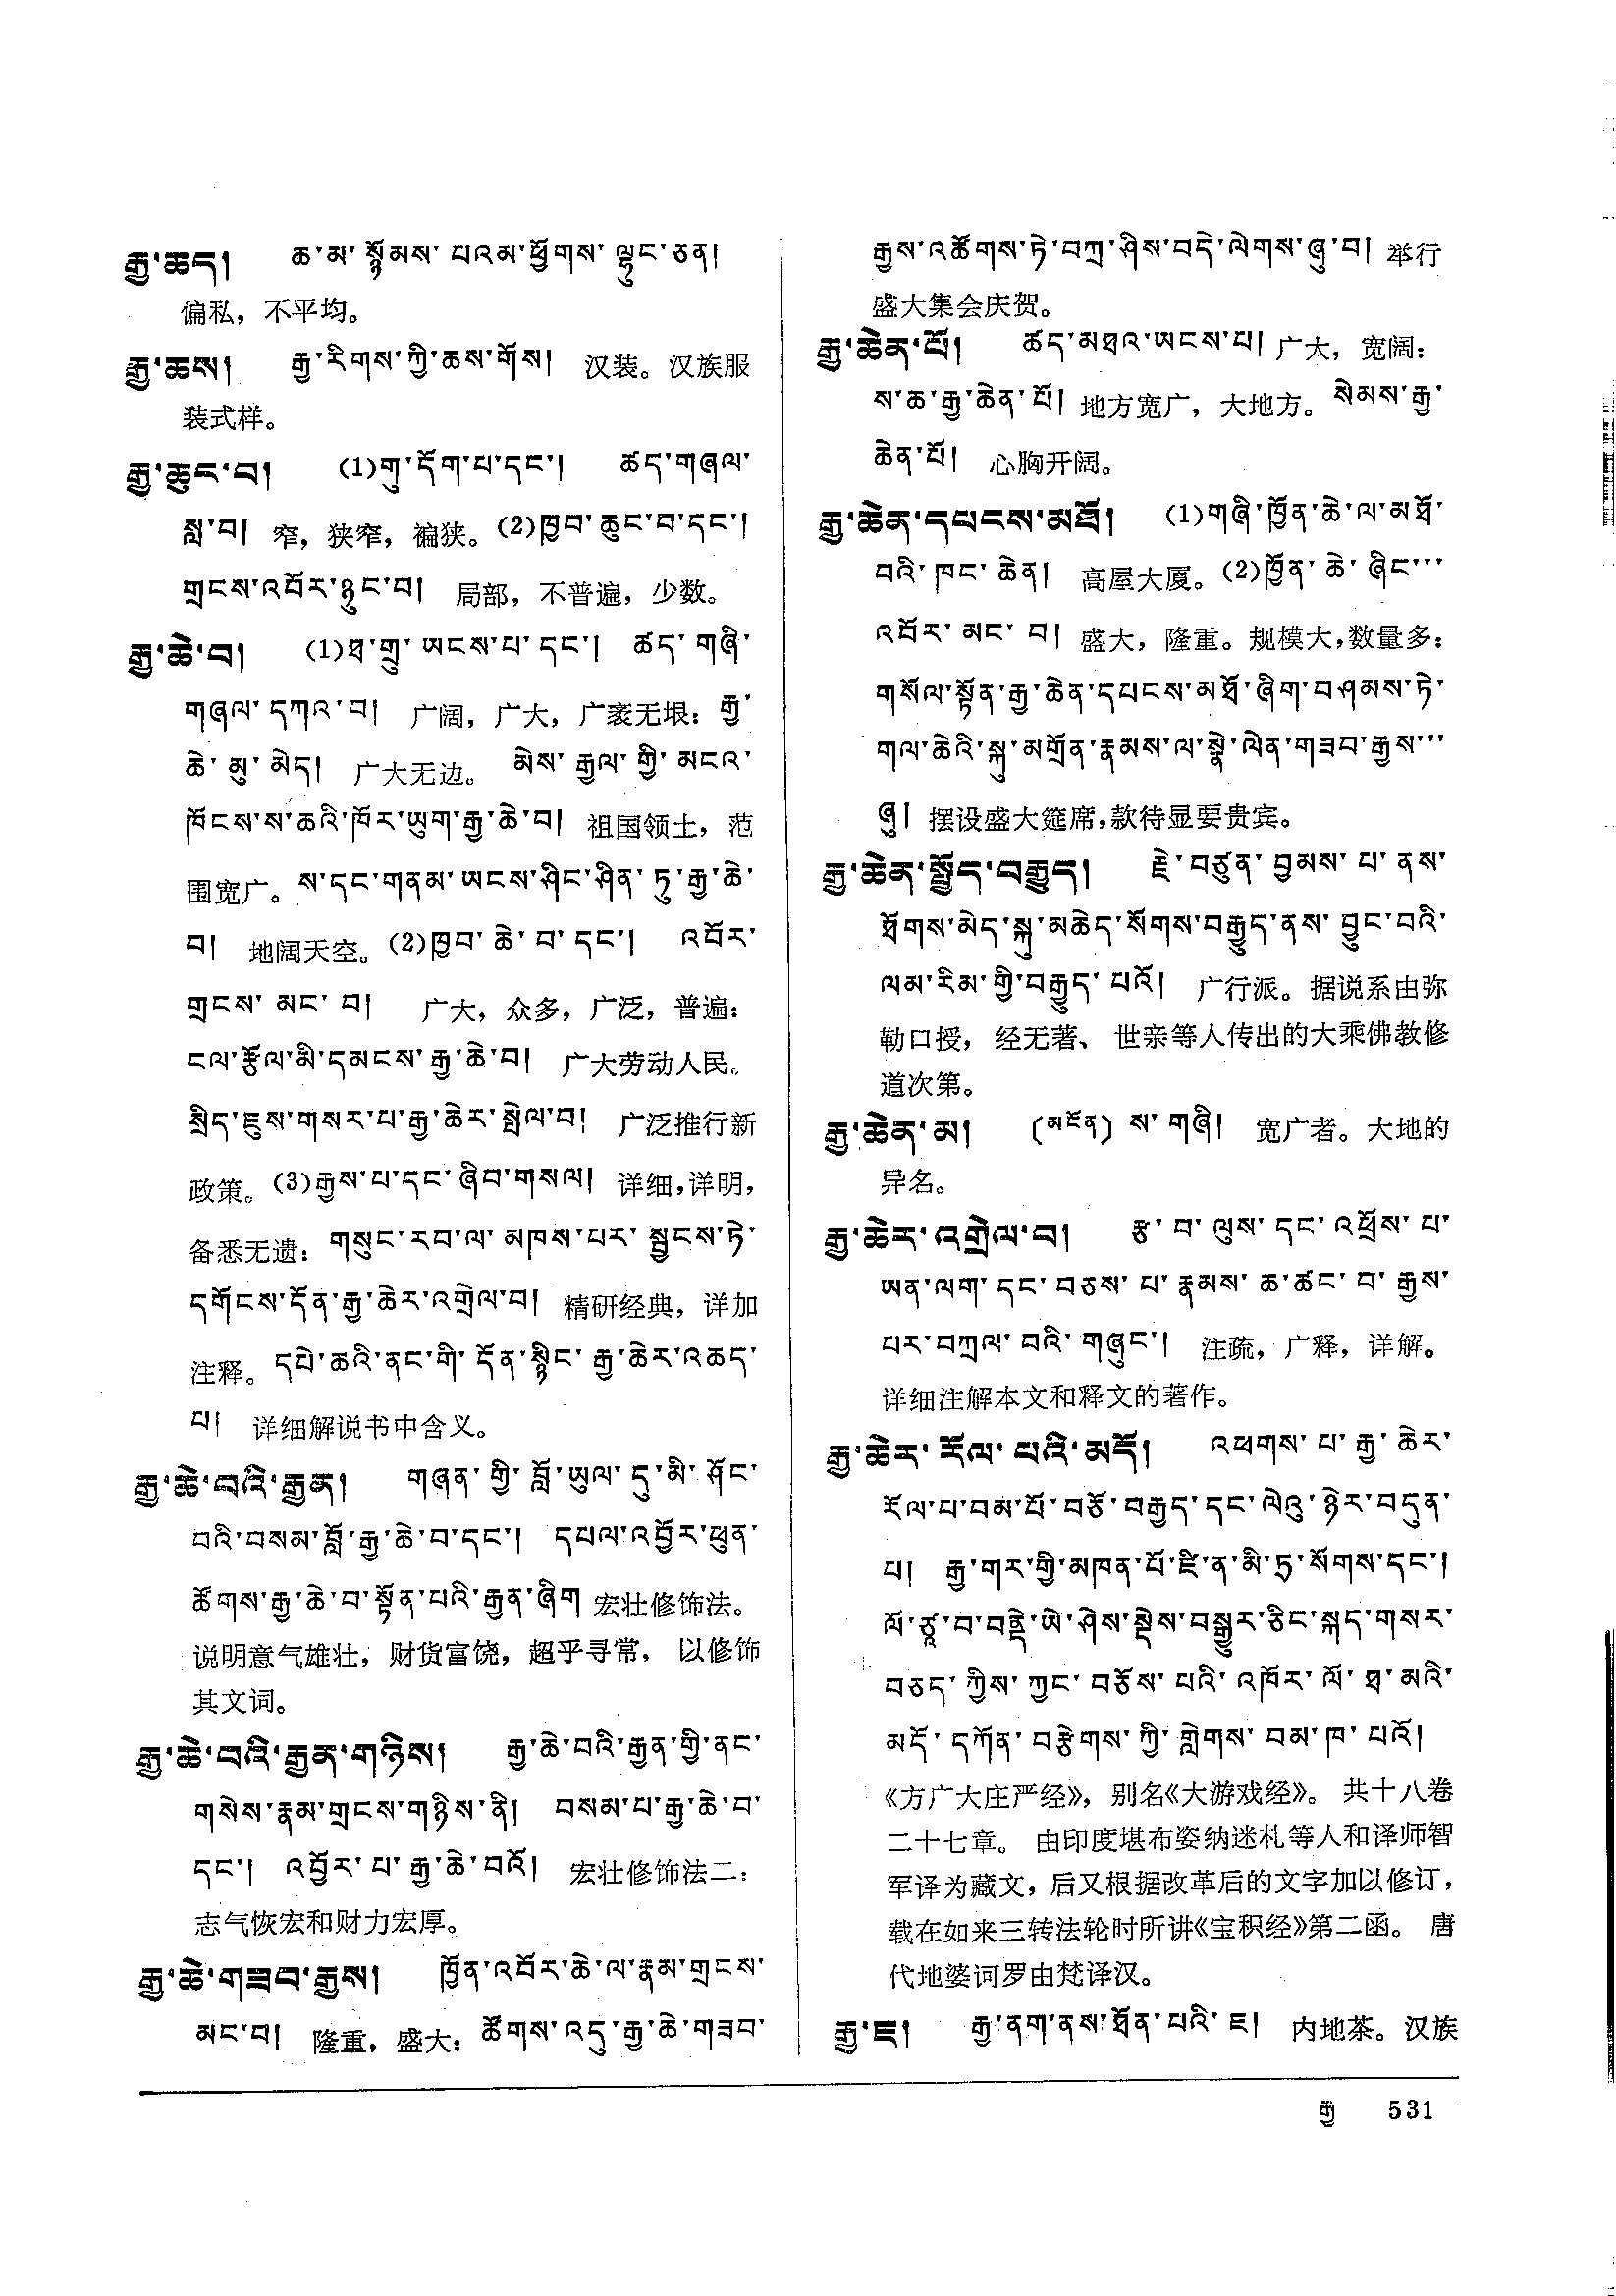 རྒྱ་ཆད། ཆ་མ་སྙོམས་པའམ་ཕྱོགས་ལྷུང་ཅན།
偏私，不平均。
རྒྱ་ཆས། རྒྱ་རིགས་ཀྱི་ཆས་གོས། 汉装。汉族服
装式样。
རྒྱ་ཆུང་བ། (1)གུ་དོག་པ་དང་། ཚད་གཞལ་
སླ་བ། 窄，狭窄，褊狭。(2)ཁྱབ་ཆུང་བ་དང་།
གྲངས་འབོར་ཉུང་བ། 局部，不普遍，少数。
རྒྱ་ཆེ་བ། (1)ཐ་གྲུ་ཡངས་པ་དང་། ཚད་གཞི་
གཞལ་དཀའ་བ། 广阔，广大，广袤无垠：རྒྱ་
ཆེ་མུ་མེད། 广大无边。 མེས་རྒྱལ་གྱི་མངའ་
ཁོངས་ས་ཆའི་ཁོར་ཡུག་རྒྱ་ཆེ་བ། 祖国领土，范
围宽广。ས་དང་གནམ་ཡངས་ཤིང་ཤིན་ཏུ་རྒྱ་ཆེ་
བ། 地阔天空。(2)ཁྱབ་ཆེ་བ་དང་། འབོར་
གྲངས་མང་བ། 广大，众多，广泛，普遍：
ངལ་རྩོལ་མི་དམངས་རྒྱ་ཆེ་བ། 广大劳动人民。
སྲིད་ཇུས་གསར་པ་རྒྱ་ཆེར་སྤེལ་བ། 广泛推行新
政策。(3)རྒྱས་པ་དང་ཞིབ་གསལ། 详细，详明，
备悉无遗：གསུང་རབ་ལ་མཁས་པར་སྦྱངས་ཏེ་
དགོངས་དོན་རྒྱ་ཆེར་འགྲེལ་བ། 精研经典，详加
注释。དཔེ་ཆའི་ནང་གི་དོན་སྙིང་རྒྱ་ཆེར་འཆད་
པ། 详细解说书中含义。
རྒྱ་ཆེ་བའི་རྒྱན། གཞན་གྱི་བློ་ཡུལ་དུ་མི་ཤོང་
བའི་བསམ་བློ་རྒྱ་ཆེ་བ་དང་། དཔལ་འབྱོར་ཕུན་
ཚོགས་རྒྱ་ཆེ་བ་སྟོན་པའི་རྒྱན་ཞིག 宏壮修饰法。
说明意气雄壮，财货富饶，超乎寻常，以修饰
其文词。
རྒྱ་ཆེ་བའི་རྒྱན་གཉིས། རྒྱ་ཆེ་བའི་རྒྱན་གྱི་ནང་
གསེས་རྣམ་གྲངས་གཉིས་ནི། བསམ་པ་རྒྱ་ཆེ་བ་
དང་། འབྱོར་པ་རྒྱ་ཆེ་བའོ། 宏壮修饰法二：
志气恢宏和财力宏厚。
རྒྱ་ཆེ་གཟབ་རྒྱས། ཁྱོན་འབོར་ཆེ་ལ་རྣམ་གྲངས་
མང་བ། 隆重，盛大：ཚོགས་འདུ་རྒྱ་ཆེ་གཟབ་
རྒྱས་འཚོགས་ཏེ་བཀྲ་ཤིས་བདེ་ལེགས་ཞུ་བ། 举行
盛大集会庆贺。
རྒྱ་ཆེན་པོ། ཚད་མཐའ་ཡངས་པ། 广大，宽阔：
ས་ཆ་རྒྱ་ཆེན་པོ། 地方宽广，大地方。སེམས་རྒྱ་
ཆེན་པོ། 心胸开阔。
རྒྱ་ཆེན་དཔངས་མཐོ། (1)གཞི་ཁྱོན་ཆེ་ལ་མཐོ་
བའི་ཁང་ཆེན། 高屋大厦。(2)ཁྱོན་ཆེ་ཞིང་་་
འབོར་མང་བ། 盛大，隆重。规模大，数量多：
གསོལ་སྟོན་རྒྱ་ཆེན་དཔངས་མཐོ་ཞིག་བཤམས་ཏེ་
གལ་ཆེའི་སྐུ་མགྲོན་རྣམས་ལ་སྣེ་ལེན་གཟབ་རྒྱས་་་
ཞུ། 摆设盛大筵席，款待显要贵宾。
རྒྱ་ཆེན་སྤྱོད་བརྒྱུད། རྗེ་བཙུན་བྱམས་པ་ནས་
ཐོགས་མེད་སྐུ་མཆེད་སོགས་བརྒྱུད་ནས་བྱུང་བའི་
ལམ་རིམ་གྱི་བརྒྱུད་པའོ། 广行派。据说系由弥
勒口授，经无著、世亲等人传出的大乘佛教修
道次第。
རྒྱ་ཆེན་མ། (མངོན) ས་གཞི། 宽广者。大地的
异名。
རྒྱ་ཆེར་འགྲེལ་བ། རྩ་བ་ལུས་དང་འཕྲོས་པ་
ཡན་ལག་དང་བཅས་པ་རྣམས་ཆ་ཚང་བ་རྒྱས་
པར་བཀྲལ་བའི་གཞུང་། 注疏，广释，详解。
详细注解本文和释文的著作。
རྒྱ་ཆེར་རོལ་པའི་མདོ། འཕགས་པ་རྒྱ་ཆེར་
རོལ་པ་བམ་པོ་བཅོ་བརྒྱད་དང་ལེའུ་ཉེར་བདུན་
པ། རྒྱ་གར་གྱི་མཁན་པོ་ཛི་ན་མི་ཏྲ་སོགས་དང་།
ལོ་ཙཱ་བ་བནྡེ་ཡེ་ཤེས་སྡེས་བསྒྱུར་ཅིང་སྐད་གསར་
བཅད་ཀྱིས་ཀྱང་བཅོས་པའི་འཁོར་ལོ་ཐ་མའི་
མདོ་དཀོན་བརྩེགས་ཀྱི་གླེགས་བམ་ཁ་པའོ།
《方广大庄严经》，别名《大游戏经》。共十八卷
二十七章。由印度堪布姿纳迷札等人和译师智
军译为藏文，后又根据改革后的文字加以修订，
载在如来三转法轮时所讲《宝积经》第二函。唐
代地婆诃罗由梵译汉。
རྒྱ་ཇ། རྒྱ་ནག་ནས་ཐོན་པའི་ཇ། 内地茶。汉族
རྒྱ 531